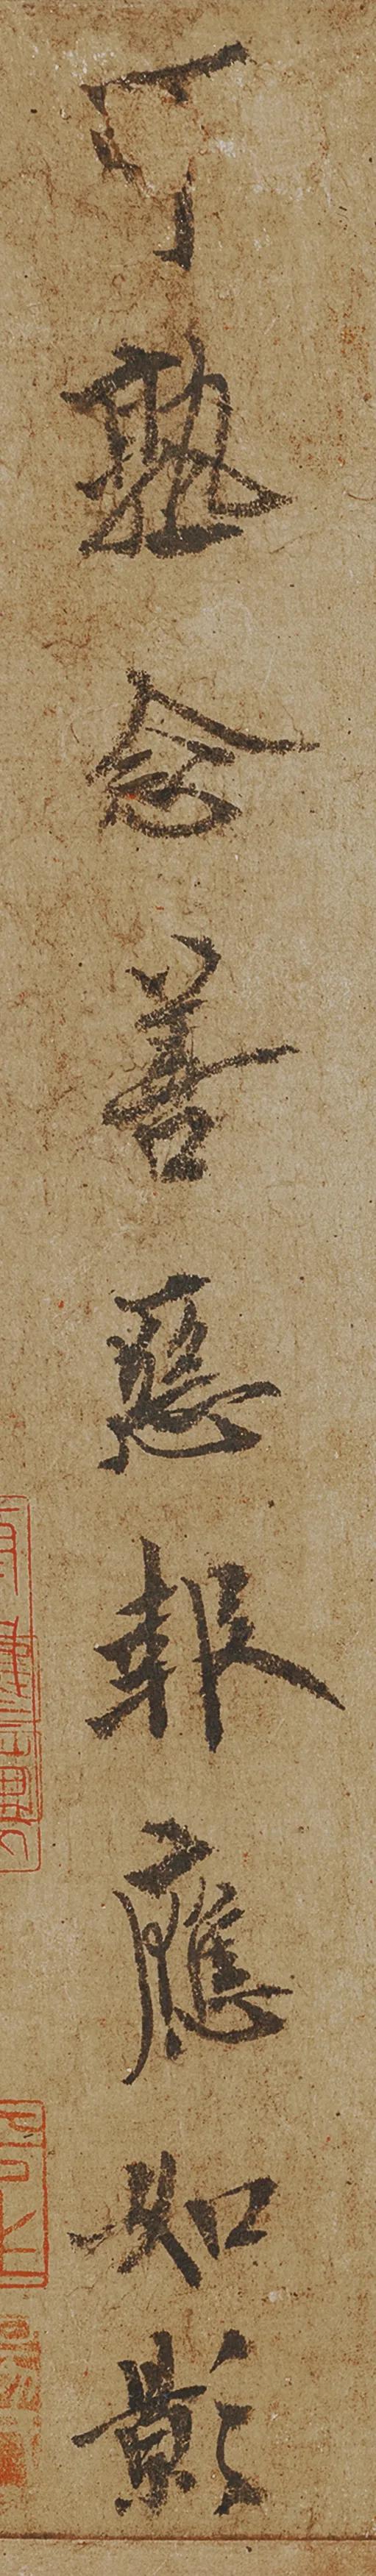 可熟念善惡報應如影